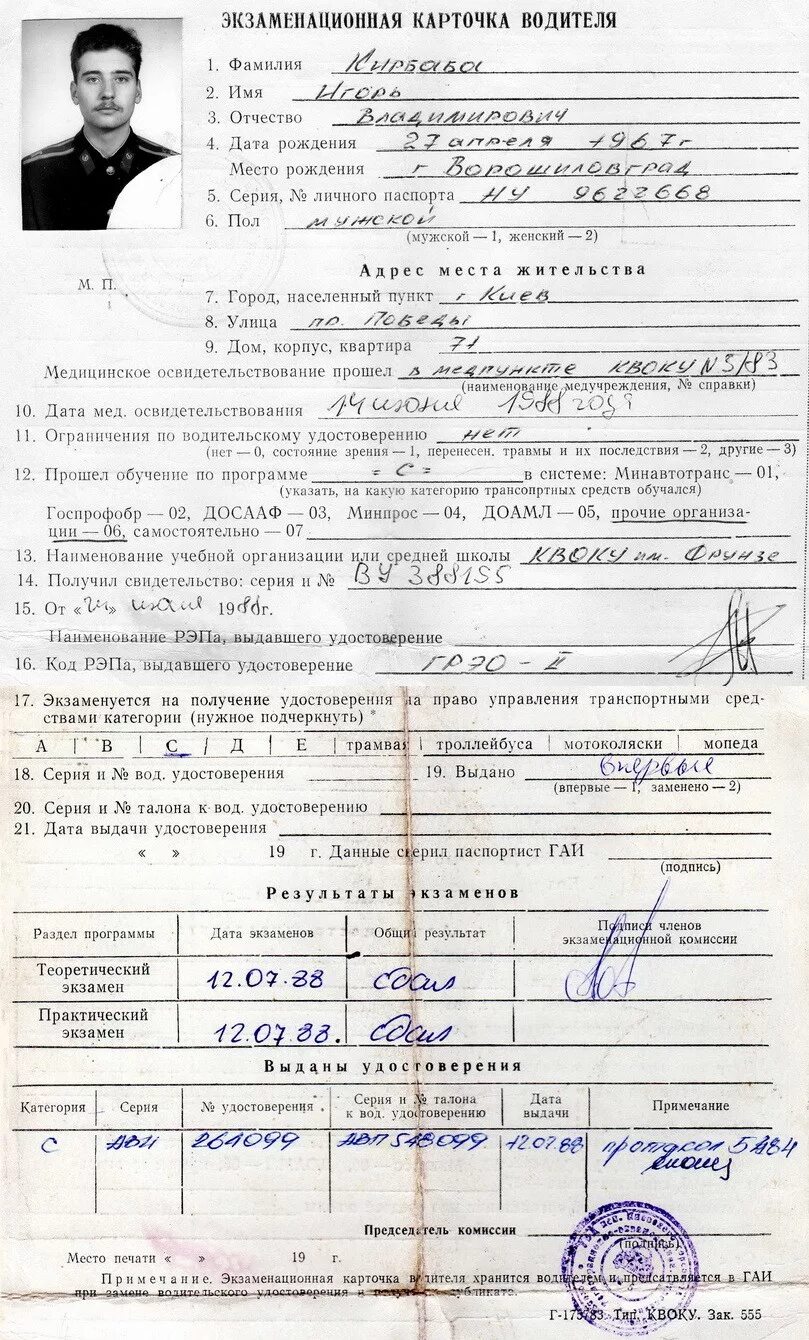 ЭКЗАМЕНАЦИОННАЯ КАРТОЧКА ВОДИТЕЛЯ
1. Фамилия Кирбаба
2. Имя Игорь
3. Отчество Владимирович
4. Дата рождения 27 апреля 1967 г
Место рождения г Ворошиловград
5. Серия, № личного паспорта НУ 9622668
6. Пол мужской
(мужской — 1, женский — 2)
М. П.
Адрес места жительства
7. Город, населенный пункт г Киев
8. Улица пр. Победы
9. Дом, корпус, квартира 71
Медицинское освидетельствование прошел в медпункте КВОКУ N 3/83
(наименование медучреждения, № справки)
10. Дата мед. освидетельствования 14 июня 1988 года
11. Ограничения по водительскому удостоверению нет
(нет — 0, состояние зрения — 1, перенесен. травмы и их последствия — 2, другие — 3)
12. Прошел обучение по программе = С = в системе: Минавтотранс — 01,
(указать, на какую категорию транспортных средств обучался)
Госпрофобр — 02, ДОСААФ — 03, Минпрос — 04, ДОАМЛ — 05, прочие организа-
ции — 06, самостоятельно — 07
13. Наименование учебной организации или средней школы КВОКУ им. Фрунзе
14. Получил свидетельство: серия и № ВУ 388155
15. От « » июля 1988г.
Наименование РЭПа, выдавшего удостоверение
16. Код РЭПа, выдавшего удостоверение ГРЭО - II
17. Экзаменуется на получение удостоверения на право управления транспортными сред-
ствами категории (нужное подчеркнуть) *
А | В | С / Д | Е | трамвая | троллейбуса | мотоколяски | мопеда
18. Серия и № вод. удостоверения 19. Выдано впервые
(впервые — 1, заменено — 2)
20. Серия и № талона к вод. удостоверению
21. Дата выдачи удостоверения
« » 19 г. Данные сверил паспортист ГАИ
(подпись)
Результаты экзаменов
Раздел программы Дата экзаменов Общий результат Подписи членов экзаменационной комиссии
Теоретический экзамен 12.07.88 сдал
Практический экзамен 12.07.88. сдал
Выданы удостоверения
Категория Серия № удостоверения Серия и № талона к вод. удостоверению Дата выдачи Примечание
С 261099 АВП 548099 12.07.88 протокол
Председатель комиссии
(подпись)
Место печати « » 19 г.
Примечание. Экзаменационная карточка водителя хранится водителем и представляется в ГАИ
при замене водительского удостоверения и получении дубликата.
Г-175783. Тип. КВОКУ. Зак. 555